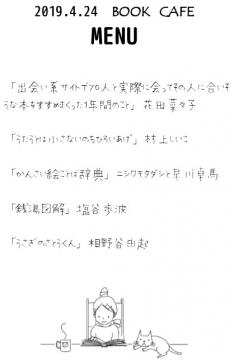 2019.4.24 BOOK CAFE
MENU
「出会い系サイトで70人と実際に会ってその人に合いそ
うな本をすすめまくった1年間のこと」 花田菜々子
「うたうとは小さないのちひろいあげ」 村上しいこ
「かんさい絵ことば辞典」 ニシワキタダシと早川卓馬
「銭湯図解」 塩谷歩波
「うさぎのさとうくん」 相野谷由起